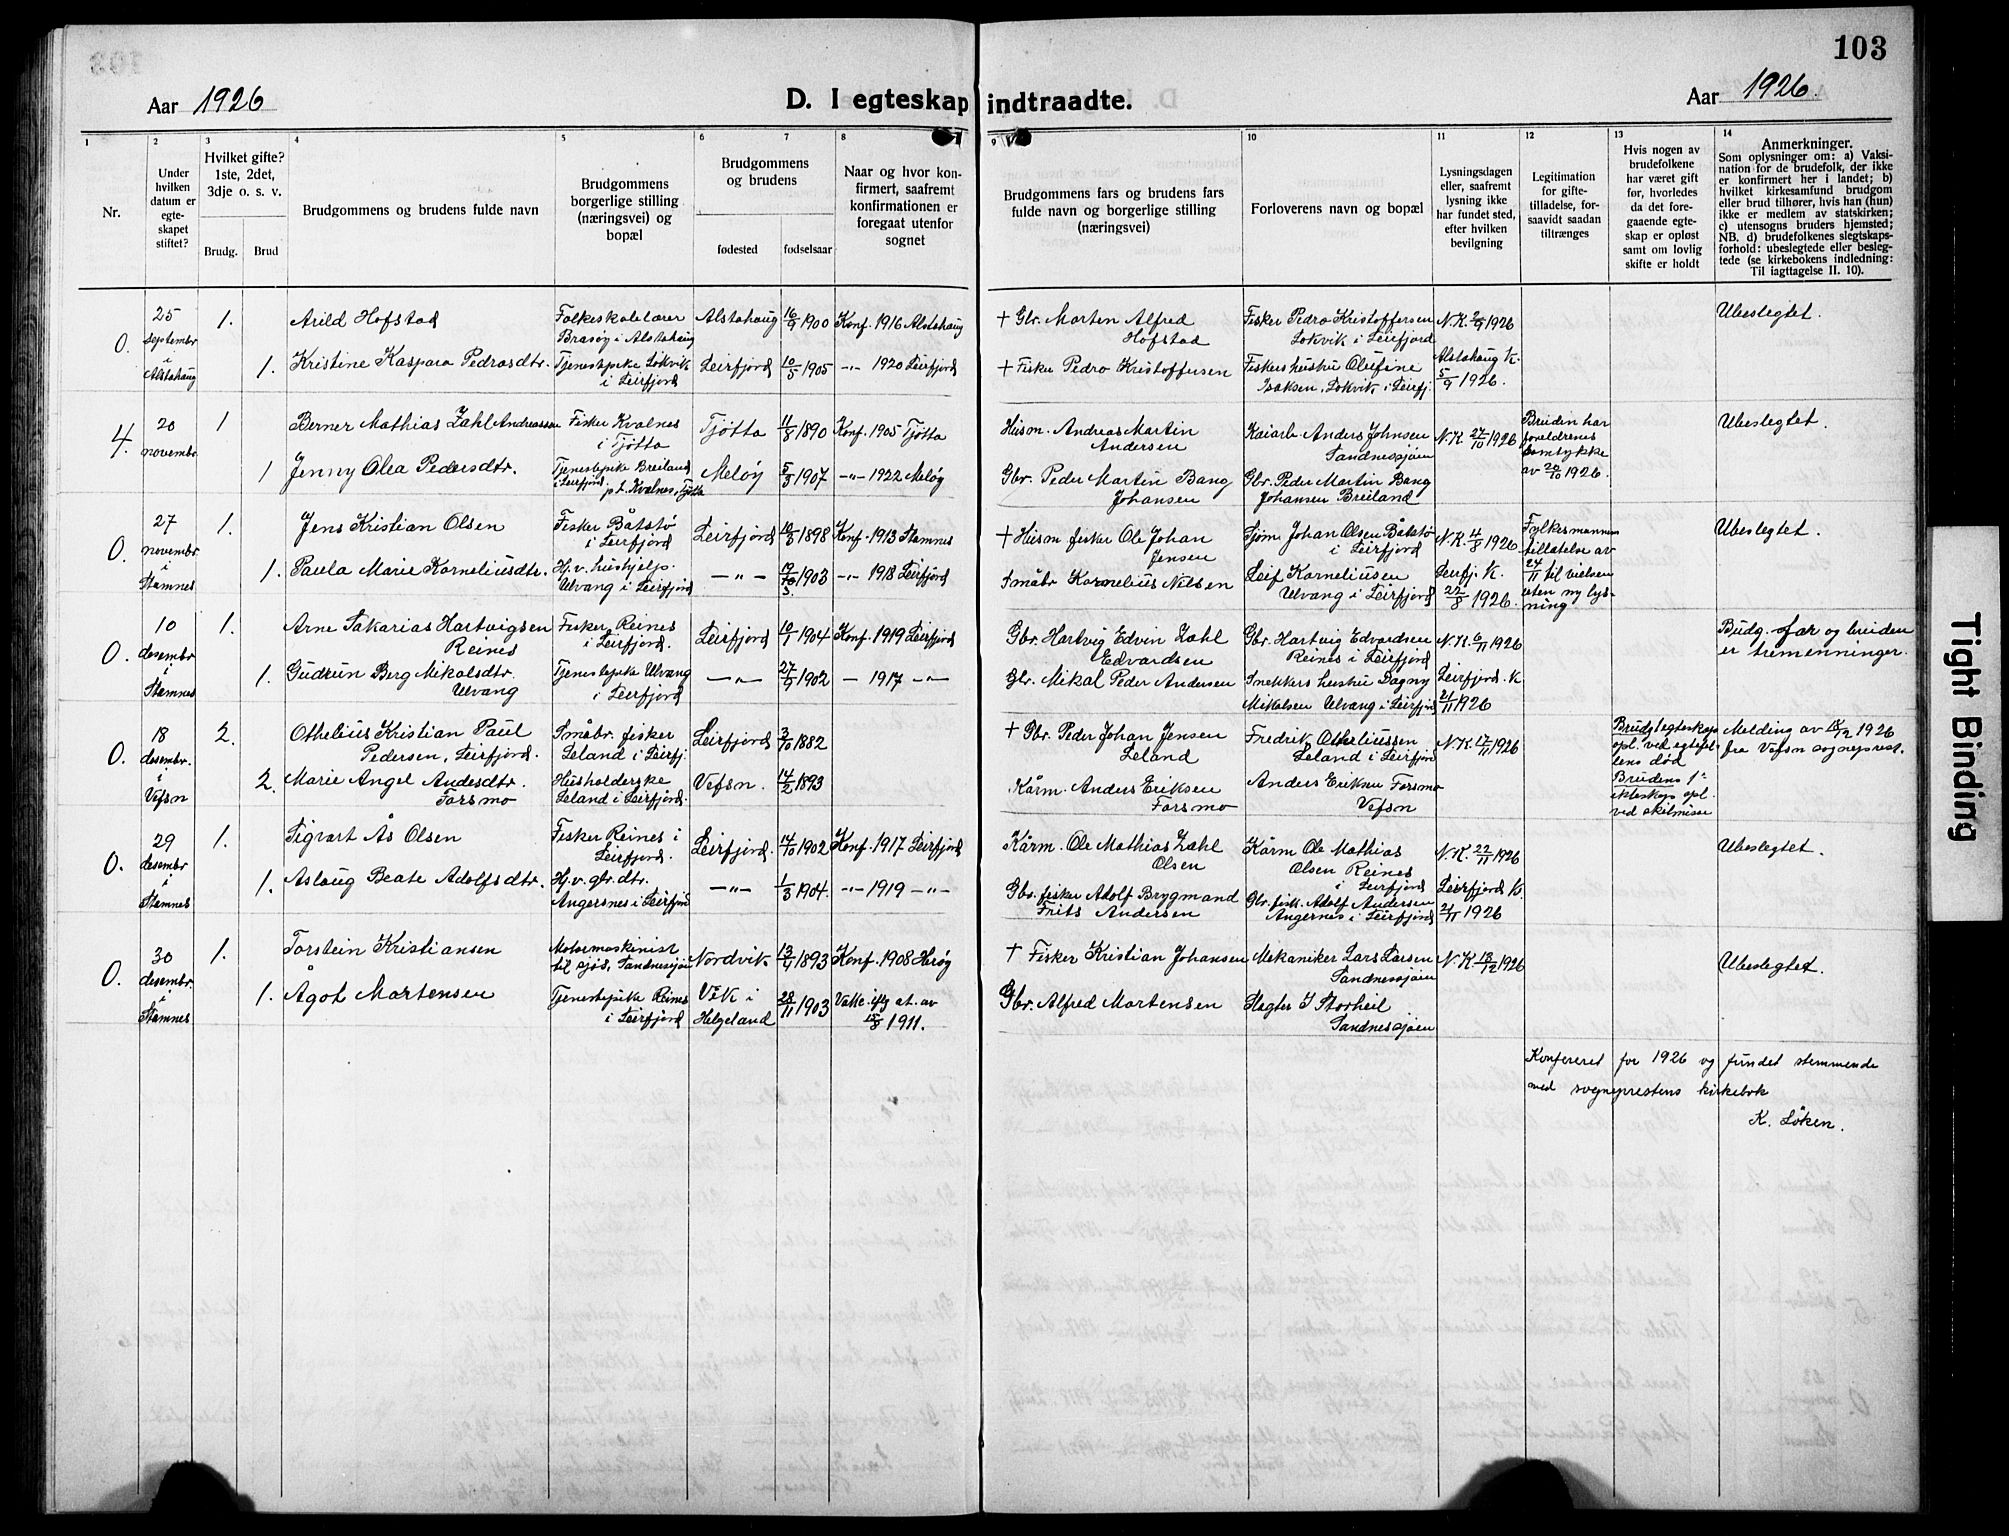 103
Aar 1926
D. I egteskap indtraadte.
Aar 1926.
1
2
3
4
5
6
7
8
9
10
11
12
13
14
Nr.
Under
hvilken
datum er
egte-
skapet
stiftet?
Hvilket gifte?
1ste, 2det,
3dje o. s. v.
Brudg.
Brud
Brudgommens og brudens fulde navn
Brudgommens
borgerlige stilling
(næringsvei) og
bopæl
Brudgommens
og brudens
fødested
fødselsaar
Naar og hvor kon-
firmert, saafremt
konfirmationen er
foregaat utenfor
sognet
Brudgommens fars og brudens fars
fulde navn og borgerlige stilling
(næringsvei)
Forloverens navn og bopæl
Lysningsdagen
eller, saafremt
lysning ikke
har fundet sted,
efter hvilken
bevilgning
Legitimation
for gifte-
tilladelse, for-
saavidt saadan
tiltrænges
Hvis nogen av
brudefolkene
har været gift
før, hvorledes
da det fore-
gaaende egte-
skap er opløst
samt om lovlig
skifte er holdt
Anmerkninger.
Som oplysninger om: a) Vaksi-
nation for de brudefolk, der ikke
er konfirmert her i landet; b)
hvilket kirkesamfund brudgom
eller brud tilhører, hvis han (hun)
ikke er medlem av statskirken;
c) utensogns bruders hjemsted;
NB. d) brudefolkenes slegtskaps-
forhold: ubeslegtede eller besleg-
tede (se kirkebokens indledning:
Til iagttagelse II. 10).
0.
25
september
i
Alstahaug
1.
Arild Hofstad
Folkeskolelærer
Brasøy i Alstahaug
Alstahaug
16/9 1900
Konf. 1916 Alstahaug
+ Gbr. Morten Alfred
Hofstad
Fisker Pedro Kristoffersen
Sokvik i Leirfjord
N.K. 2/9 1926
Ubeslegtet.
1.
Kristine Kaspara Pedrosdtr.
Tjenestepike Sokvik
i Leirfjord
Leirfjord
10/5 1905
-"- 1920 Leirfjord
+ Fisker Pedro Kristoffersen
Fiskers hustru Olufine
Isaksen, Sokvik i Leirfj.
Alstahaug K.
5/9 1926.
4.
20
novembr.
1
Berner Mathias Zahl Andreassen
Fisker Kvalnes
i Tjøtta
Tjøtta
11/8 1890
Konf. 1905 Tjøtta
Husm. Andreas Martin
Andersen
Kaiarb. Anders Johnsen
Sandnessjøen
N.K. 24/10 1926
Bruden har
foreldrenes
samtykke
av 20/10 1926.
Ubeslegtet.
1
Jenny Olea Pedersdtr.
Tjenestepike Breiland
i Leirfjord
p.t. Kvalnes, Tjøtta
Meløy
5/3 1907
-"- 1922 Meløy
Gbr. Peder Martin Bang
Johansen
Gbr. Peder Martin Bang
Johansen Breiland
0.
27
novembr.
i
Stamnes
1.
Jens Kristian Olsen
Fisker Båtstø
i Leirfjord
Leirfjord
10/3 1898
Konf. 1913 Stamnes
+ Husm. fisker Ole Johan
Jensen
Sjøm. Johan Olsen Båtstø
i Leirfjord
N.K. 4/8 1926.
Fylkesmannens
tillatelse av
24/11 til vielsen
uten ny lys-
ning
Ubeslegtet.
1.
Paula Marie Korneliusdtr.
Hj.v. hushjelp.
Ulvang i Leirfjord
-"-
1903
-"- 1918 Leirfjord
Småbr. Kornelius Nilsen
Leif Korneliusen
Ulvang i Leirfjord
Leirfj. K.
22/8 1926.
0.
10
desembr
i
Stamnes
1.
Arne Sakarias Hartvigsen
Reines
Fisker, Reines
i Leirfjord.
Leirfjord
10/1 1904
Konf. 1919 Leirfjord
Gbr. Hartvig Edvin Zahl
Edvardsen
Gbr. Hartvig Edvardsen
Reines i Leirfjord
N.K. 6/11 1926
Budg. s far og bruden
er tremenninger.
1.
Gudrun Berg Mikalsdtr.
Ulvang
Tjenestepike Ulvang
i Leirfjord
-"-
27/9 1902
- 1917 -"-
Gbr. Mikal Peder Andersen
Snekkers hustru Dagny
Mikalsen Ulvang i Leirfjord
Leirfjord. K
21/11 1926
0.
18
desembr.
i
Vefsn
2.
Othelius Kristian Paul
Pedersen, Leirfjord.
Småbr. fisker
Leland i Leirfj.
Leirfjord
3/10 1882
+ Gbr. Peder Johan Jensen
Leland
Fredrik Otheliussen
Leland i Leirfjord
N.K. 17/11 1926
Brudg.s egteskap
opl. ved egtefel-
lens død
Brudens 1ste
ekteskap opl.
ved skilsmisse
Melding av 18/12 1926
fra Vefsn sogneprest.
2.
Marie Angel Andesdtr.
Forsmo
Husholderske
Leland i Leirfjord.
Vefsn.
14/2 1893
Kårm. Anders Eriksen
Forsmo
Anders Eriksen Forsmo
Vefsn
0.
29
desembr
i
Stamnes
1.
Sigvart Ås Olsen
Fisker Reines i
Leirfjord.
Leirfjord.
14/10 1902
Konf. 1917 Leirfjord
Kårm. Ole Mathias Zahl
Olsen
Kårm. Ole Mathias
Olsen Reines
i Leirfjord
N.K. 22/11 1926
Ubeslegtet.
1.
Aslaug Beate Adolfsdtr.
Hj.v. gbr.dtr.
Angersnes i Leirfjord
-"-
1/3 1904.
-"- 1919 -"-
Gbr. fisker Adolf Brygmand
Frits Andersen
Gbr. fisk. Adolf Andersen
Angernes i Leirfjord
Leirfjord K.
21/11 1926
0.
30
desembr.
i
Stamnes
1.
Torstein Kristiansen
Motormaskinist
til sjøs, Sandnessjøen
Nordvik
13/4 1893
Konf. 1908 Herøy
+ Fisker Kristian Johansen
Mekaniker Lars Larsen
Sandnessjøen
N.K. 13/12 1926
Ubeslegtet.
1.
Ågot Mortensen
Tjenestepike Reines
i Leirfjord
Vik i
Helgeland
28/11 1903
Vakc. iflg at. av
15/8 1911.
Gbr. Alfred Mortensen
Slagter J. Storheil
Sandnessjøen
Konfereret for 1926 og fundet stemmende
med sogneprestens kirkebok
K. Løken.
Tight Binding